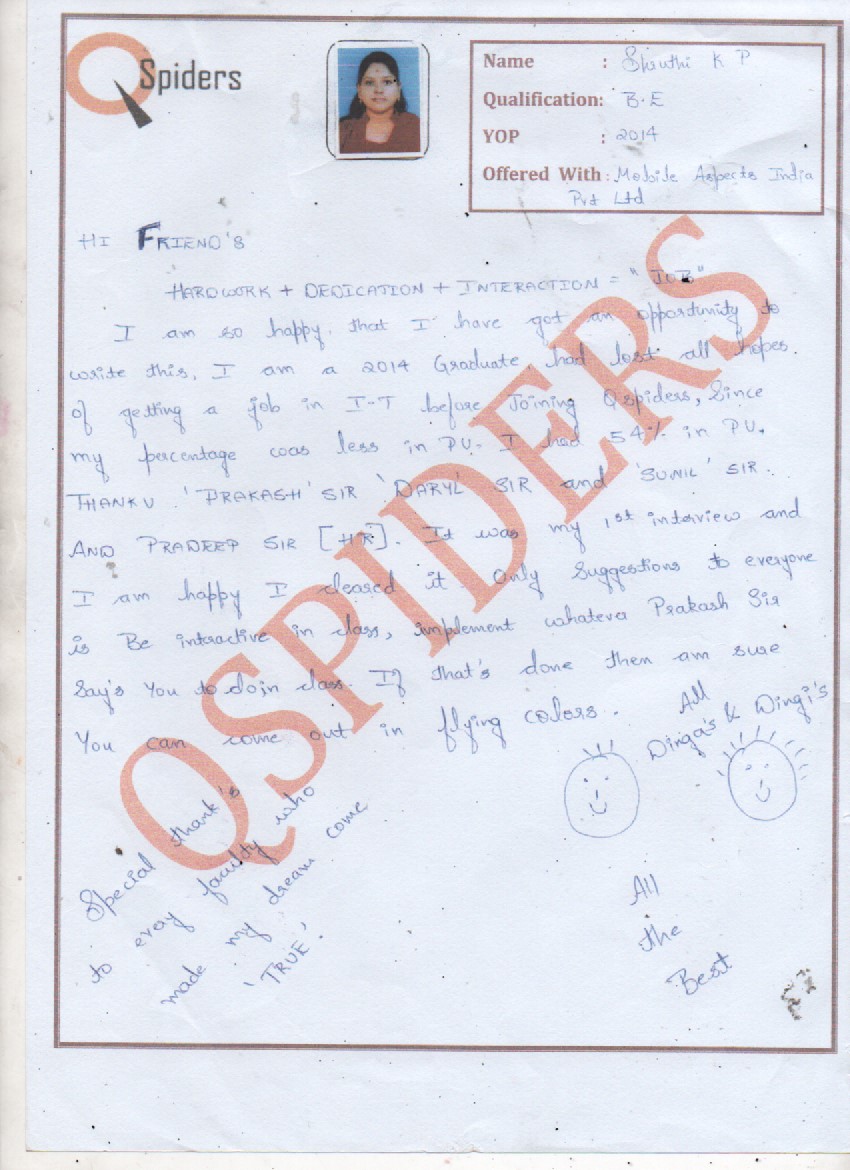 QSpiders
Name : Shruthi K P
Qualification: B.E
YOP : 2014
Offered With : Mobile Aspects India
Pvt Ltd
HI FRIEND'S
HARDWORK + DEDICATION + INTERACTION = "JOB"
I am so happy that I have got an opportunity to
write this. I am a 2014 Graduate, had lost all hopes
of getting a job in I-T before Joining Qspiders, Since
my percentage was less in PU. I had 54% in PU.
THANKU 'PRAKASH' SIR 'DARYL' SIR and 'SUNIL' SIR.
AND PRADEEP SIR [HR]. It was my 1st interview and
I am happy I cleared it Only Suggestions to everyone
is Be intractive in class, implement whatever Prakash Sir
Say's You to do in class. If that's done then am sure
You can come out in flying colors.
All
Dinga's & Dingi's
Special thank's
to every faculty who
made my dream come
'TRUE'.
All
the
Best
QSPIDERS